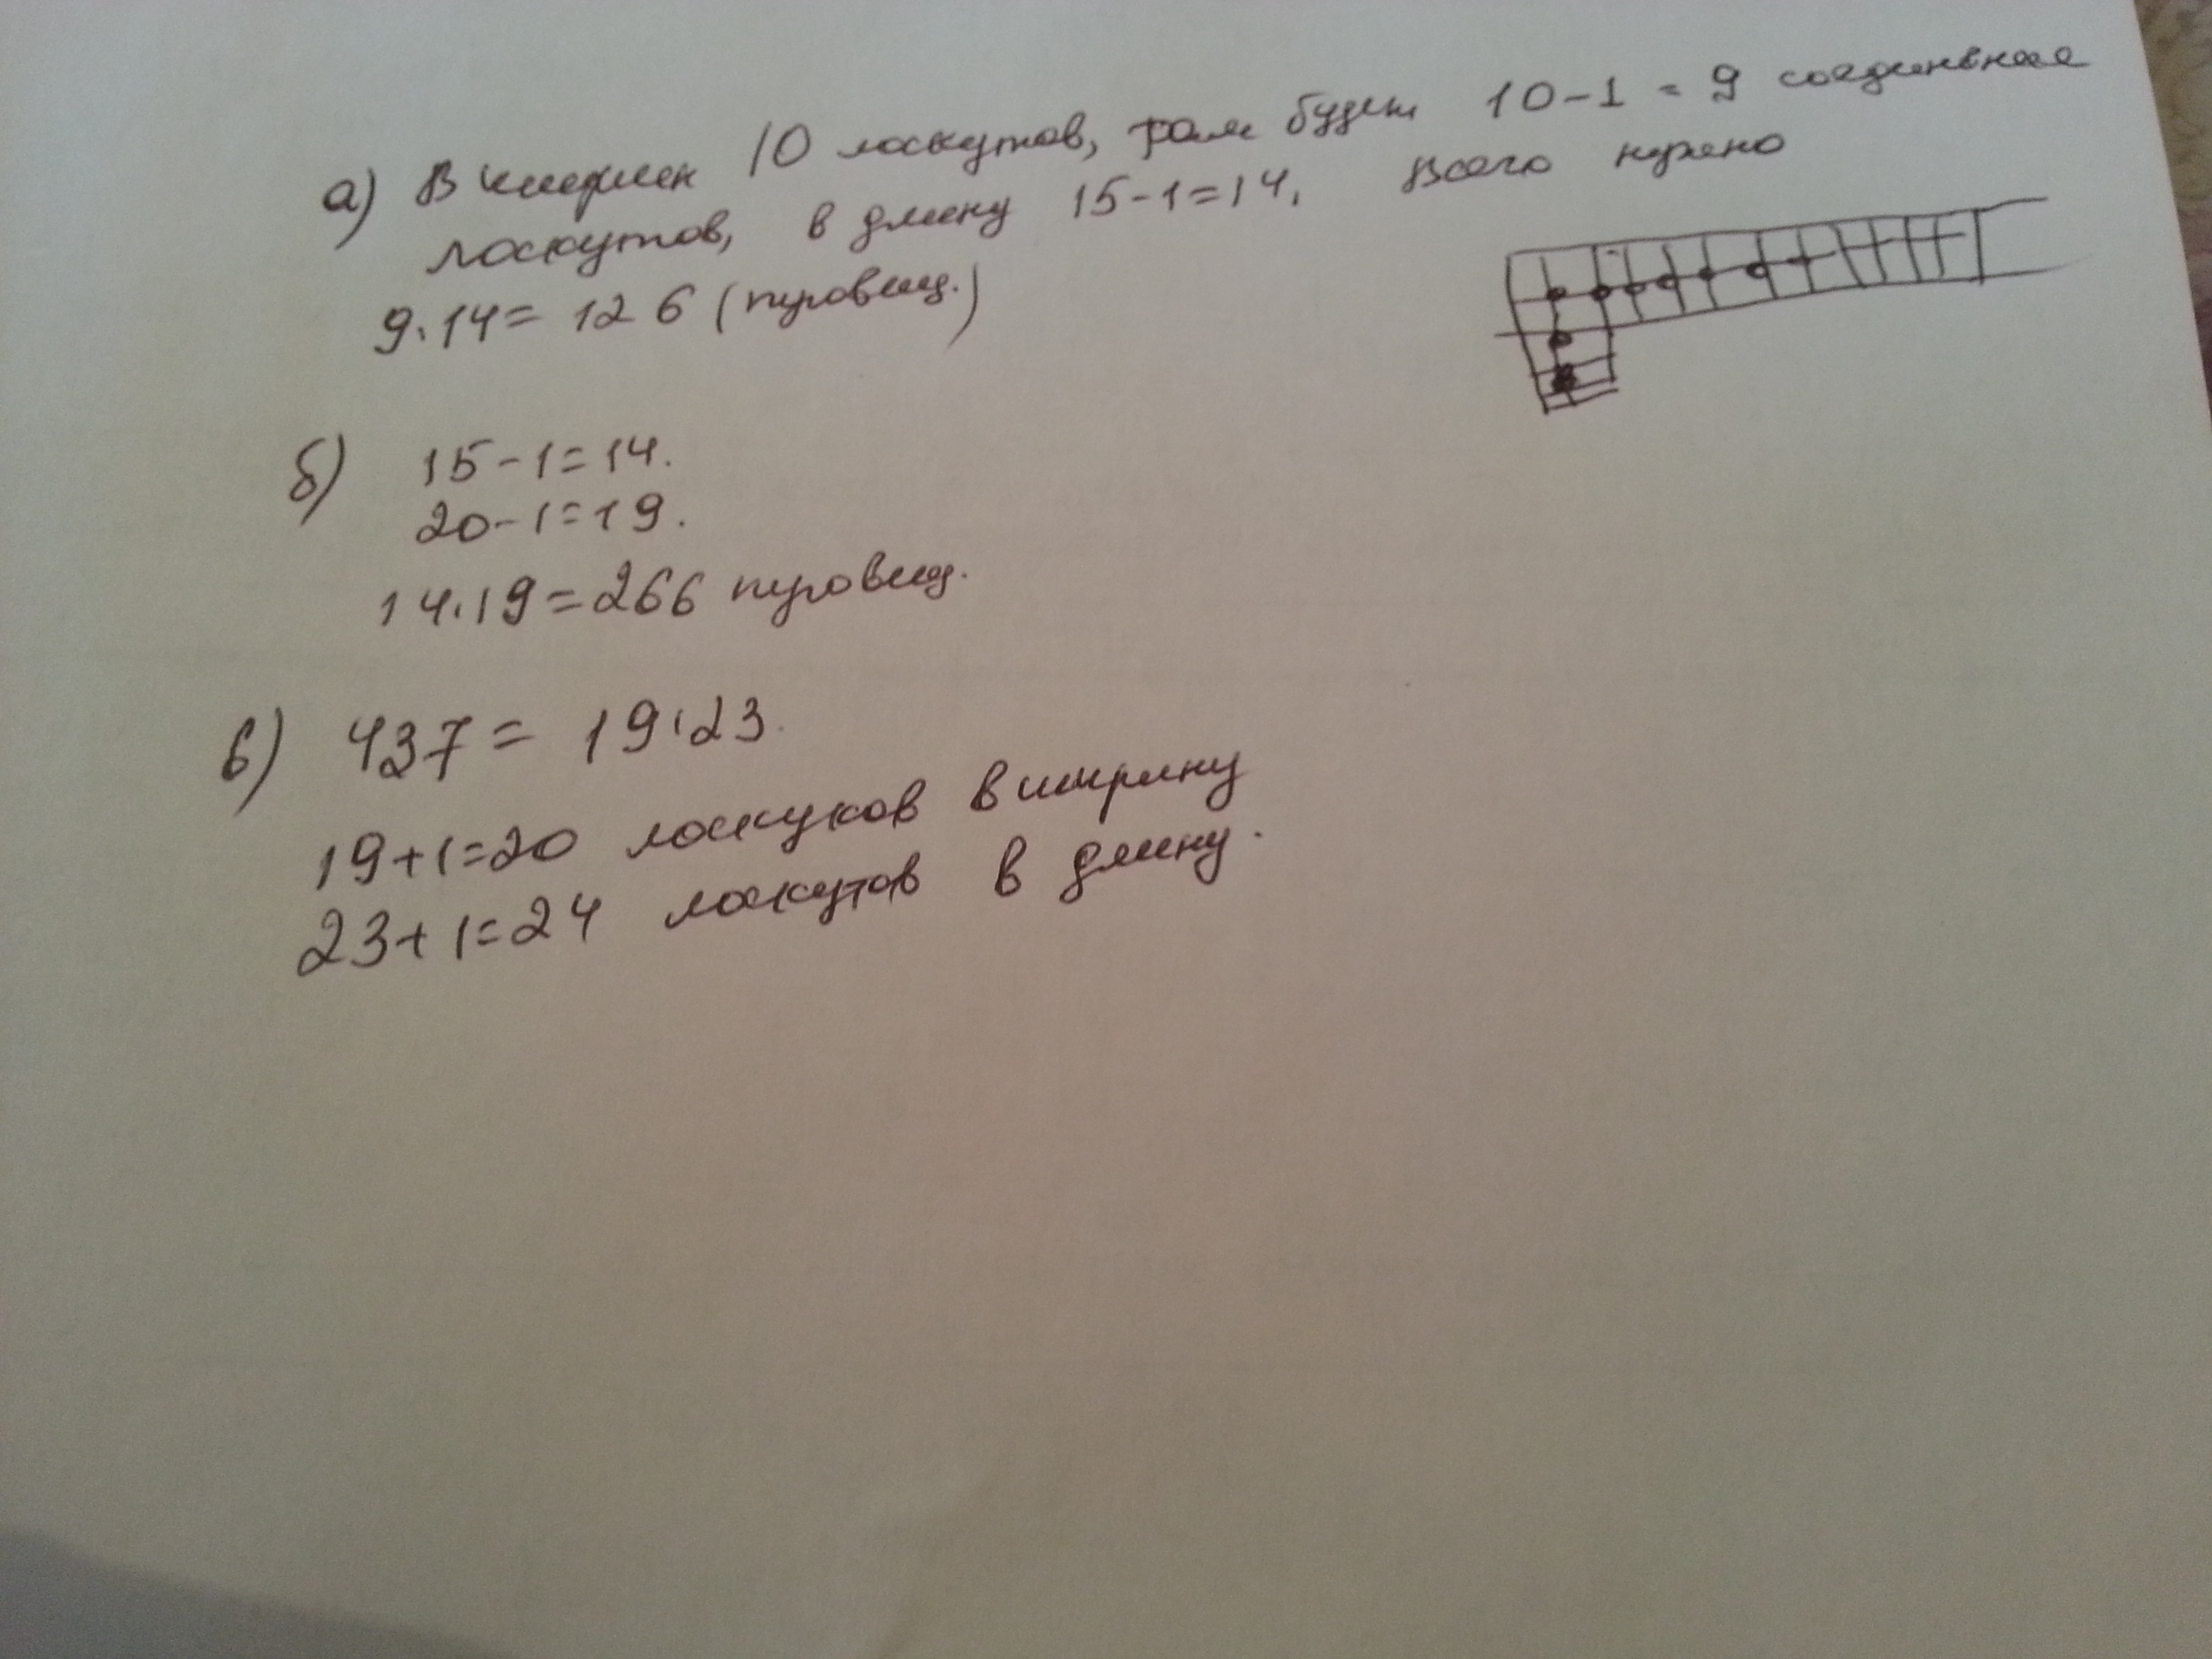 а) В ширин 10 лоскутов, там будет 10-1=9 соединение
лоскутов, в длину 15-1=14. Всего нужно
9·14=126 (пуговиц.)
б) 15-1=14.
20-1=19.
14·19=266 пуговиц.
в) 437=19·23.
19+1=20 лоскуков в ширину
23+1=24 лоскутов в длину.